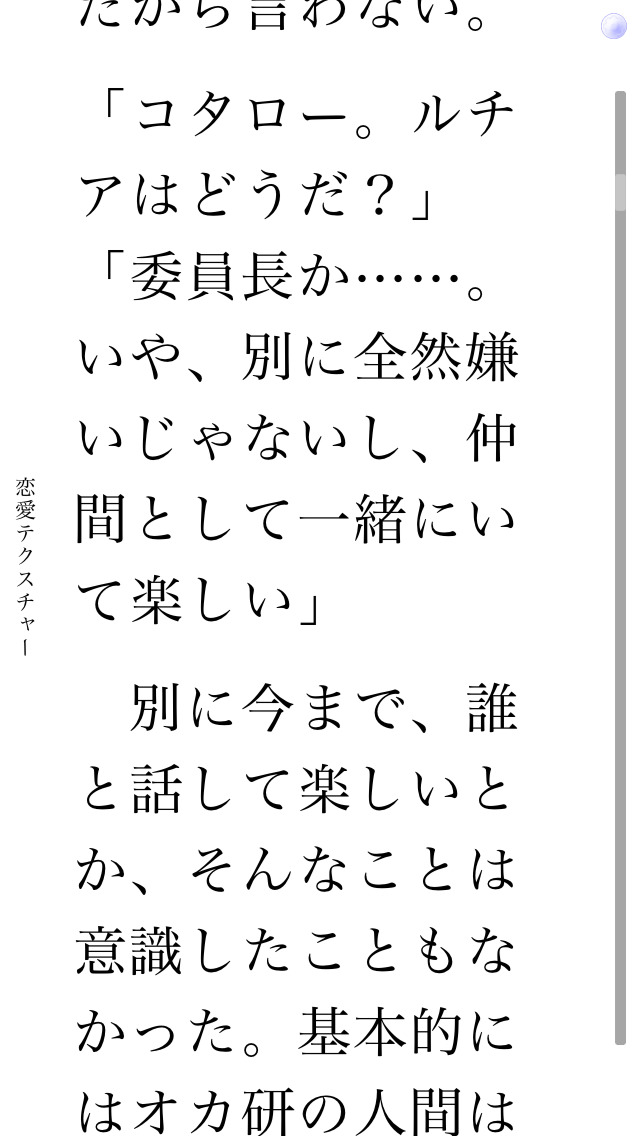 だから言わない。
「コタロー。ルチ
アはどうだ？」
「委員長か……。
いや、別に全然嫌
いじゃないし、仲
間として一緒にい
て楽しい」
　別に今まで、誰
と話して楽しいと
か、そんなことは
意識したこともな
かった。基本的に
はオカ研の人間は
恋愛テクスチャー